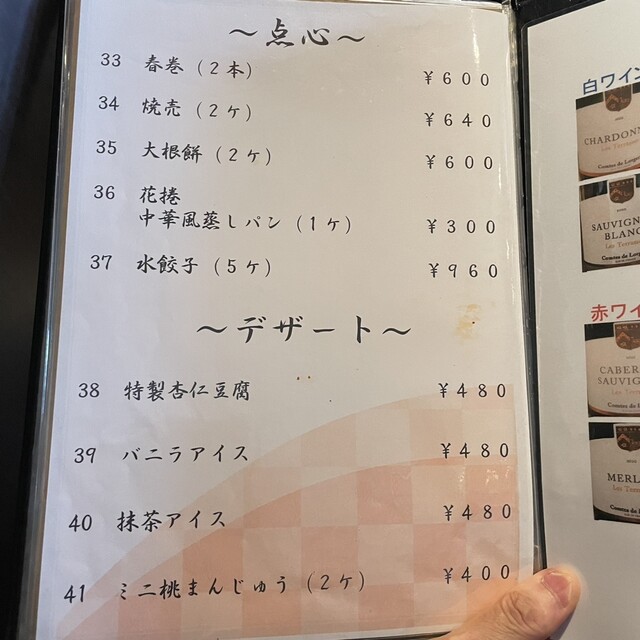 ～点心～
33 春巻（２本） ￥６００
34 焼売（２ケ） ￥６４０
35 大根餅（２ケ） ￥６００
36 花捲
中華風蒸しパン（１ケ） ￥３００
37 水餃子（５ケ） ￥９６０
～デザート～
38 特製杏仁豆腐 ￥４８０
39 バニラアイス ￥４８０
40 抹茶アイス ￥４８０
41 ミニ桃まんじゅう（２ケ） ￥４００
白ワイン
CHARDONN
SAUVIGN
BLANC
赤ワイ
CABER
SAUVIG
MERL